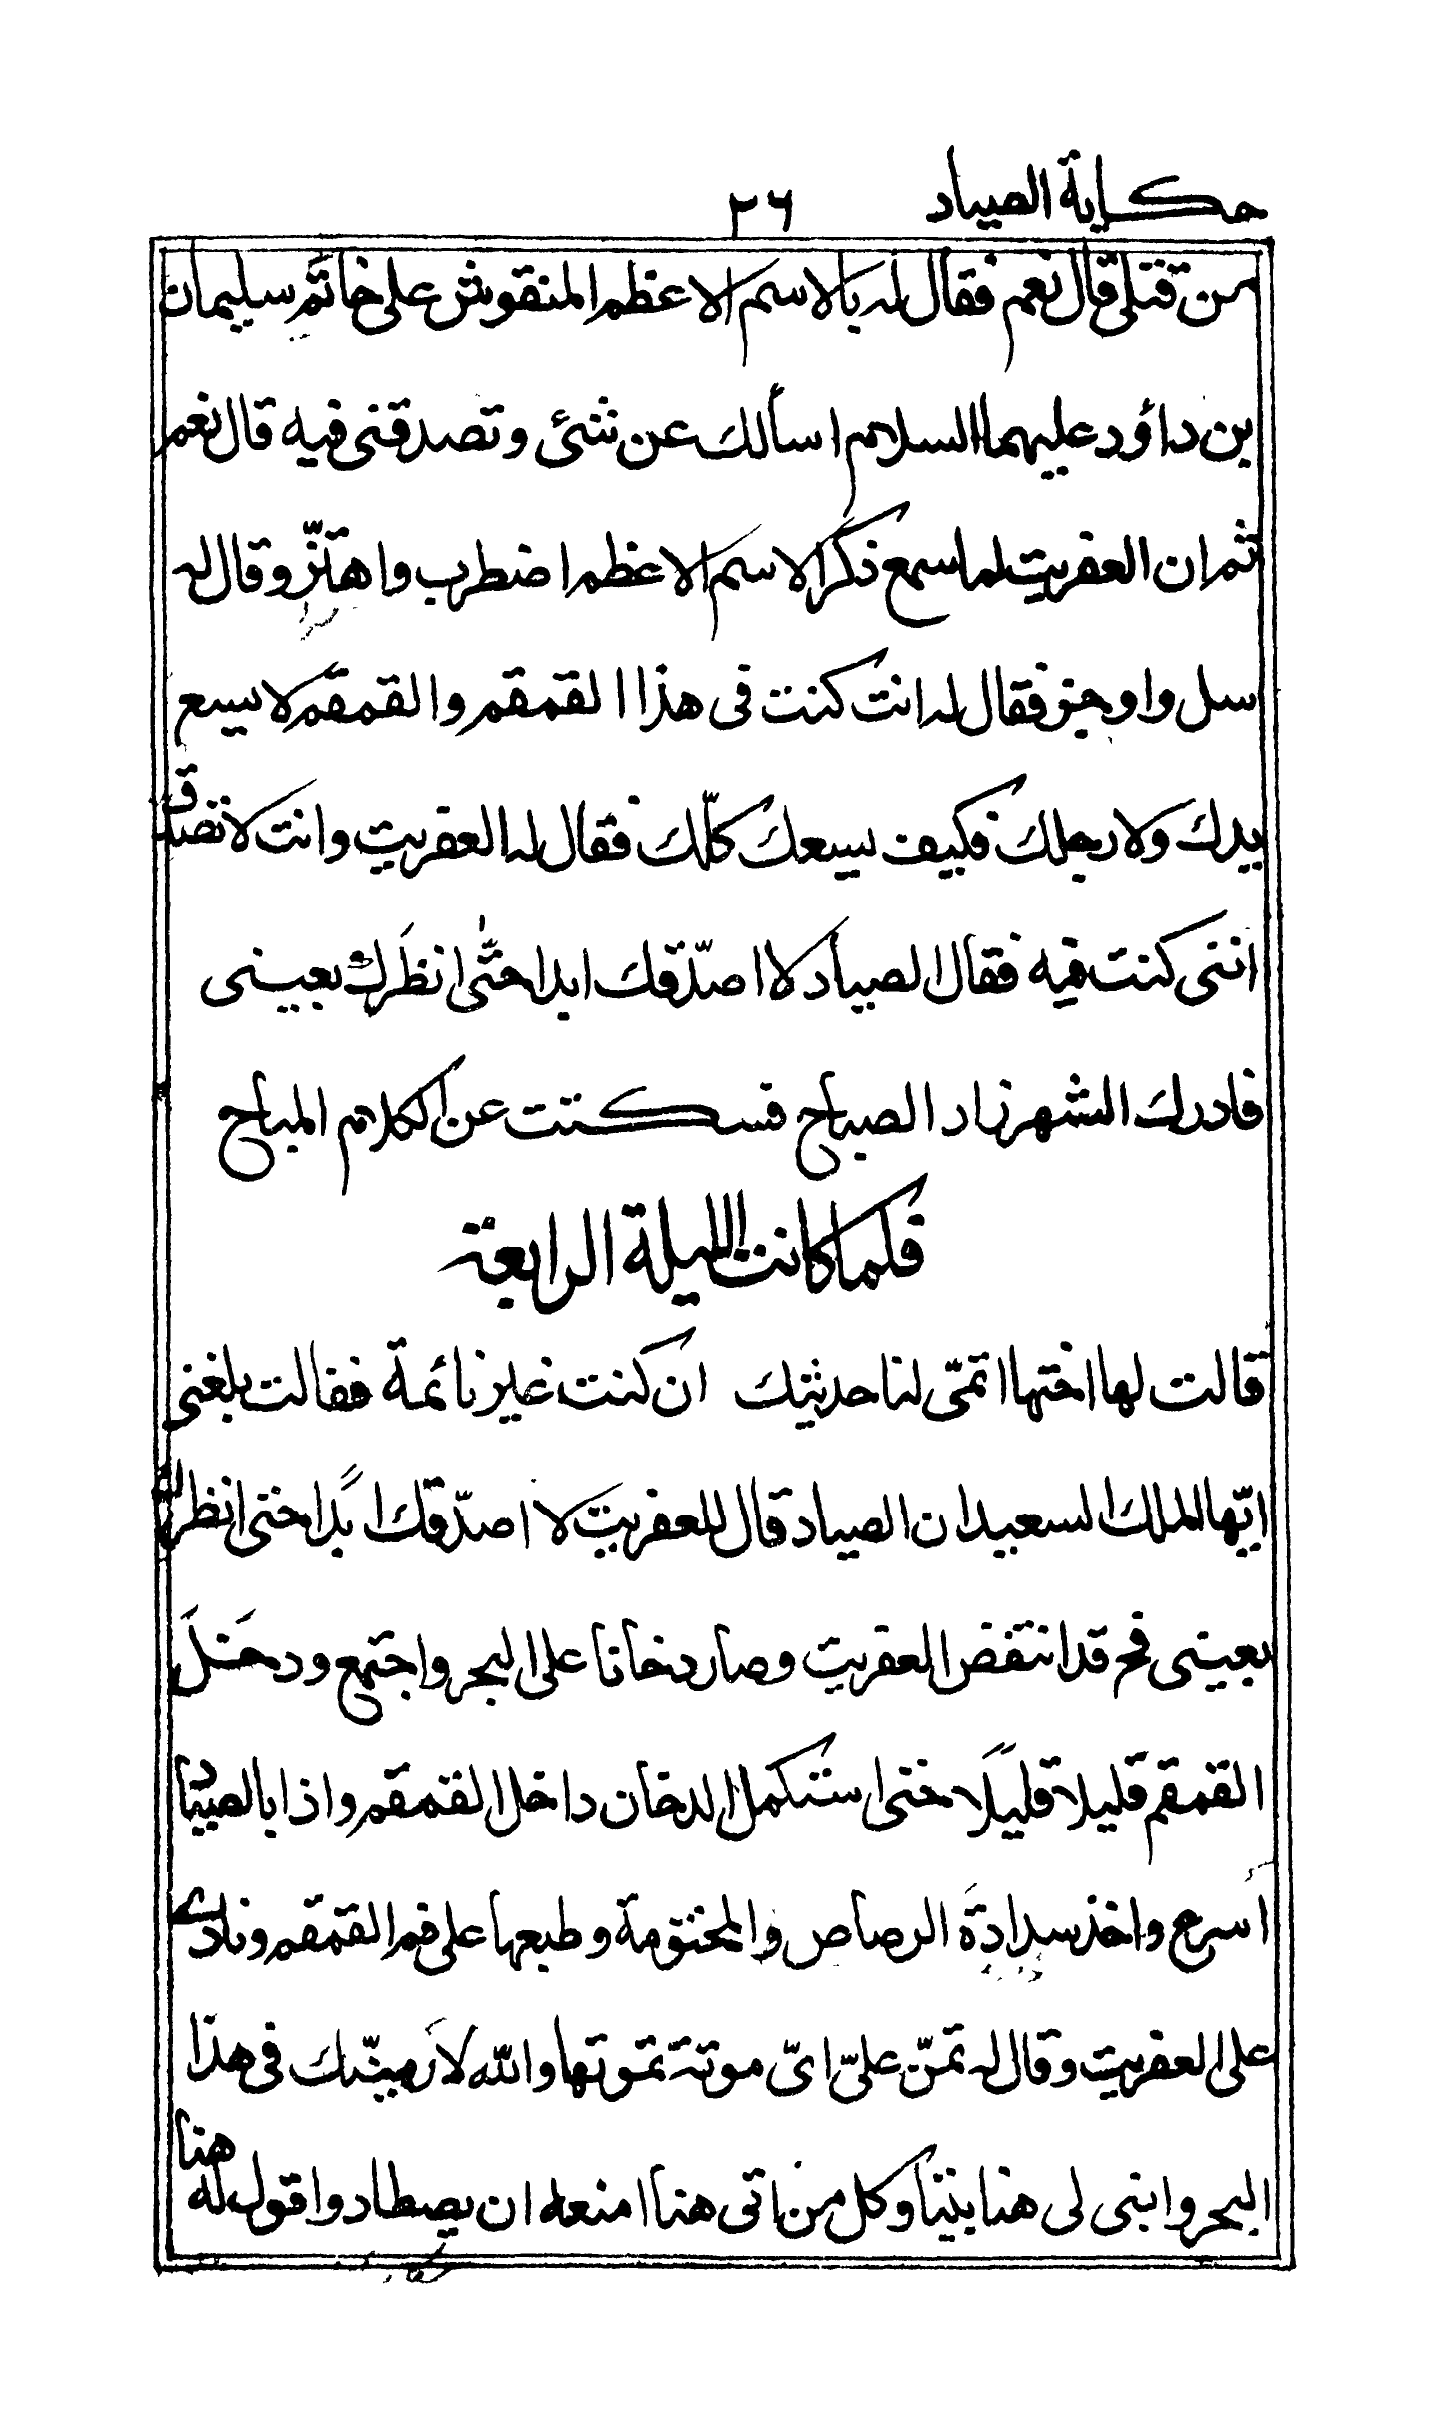 حكاية الصياد ٢٦
من قتلى قال نعم فقال له بالاسم الاعظم المنقوش على خاتم سليمان
بن داؤد عليهما السلام اسألك عن شئ وتصدقنى فيه قال نعم
ثم ان العفريت لما سمع ذكر الاسم الاعظم اضطرب واهتزّ وقال له
سل واوجز فقال له انت كنت فى هذا القمقم والقمقم لا يسع
يدك ولا رجلك فكيف يسعك كلّك فقال له العفريت وانت لا تصدق
اننى كنت فيه فقال الصياد لا اصدّقك ابدا حتّى انظرك بعينى
فادرك الشهرزاد الصباح فسكتت عن الكلام المباح
فلما كانت الليلة الرابعة
قالت لها اختها اتمّى لنا حديثك ان كنت غير نائمة فقالت بلغنى
ايّها الملك السعيد ان الصياد قال للعفريت لا اصدّقك ابدًا حتى انظرك
بعينى فح قد انتفض العفريت وصار دخانا على البحر واجتمع ودخل
القمقم قليلا قليلًا حتى استكمل الدخان داخل القمقم واذا بالصياد
اسرع واخذ سدادة الرصاص والمختومة وطبعها على فم القمقم ونادى
على العفريت وقال له تمنّ علىّ اىّ موتة تموتها والله لارمينّك فى هذا
البحر وابنى لى هنا بيتا وكل من اتى هنا امنعه ان يصطاد واقول له هنا